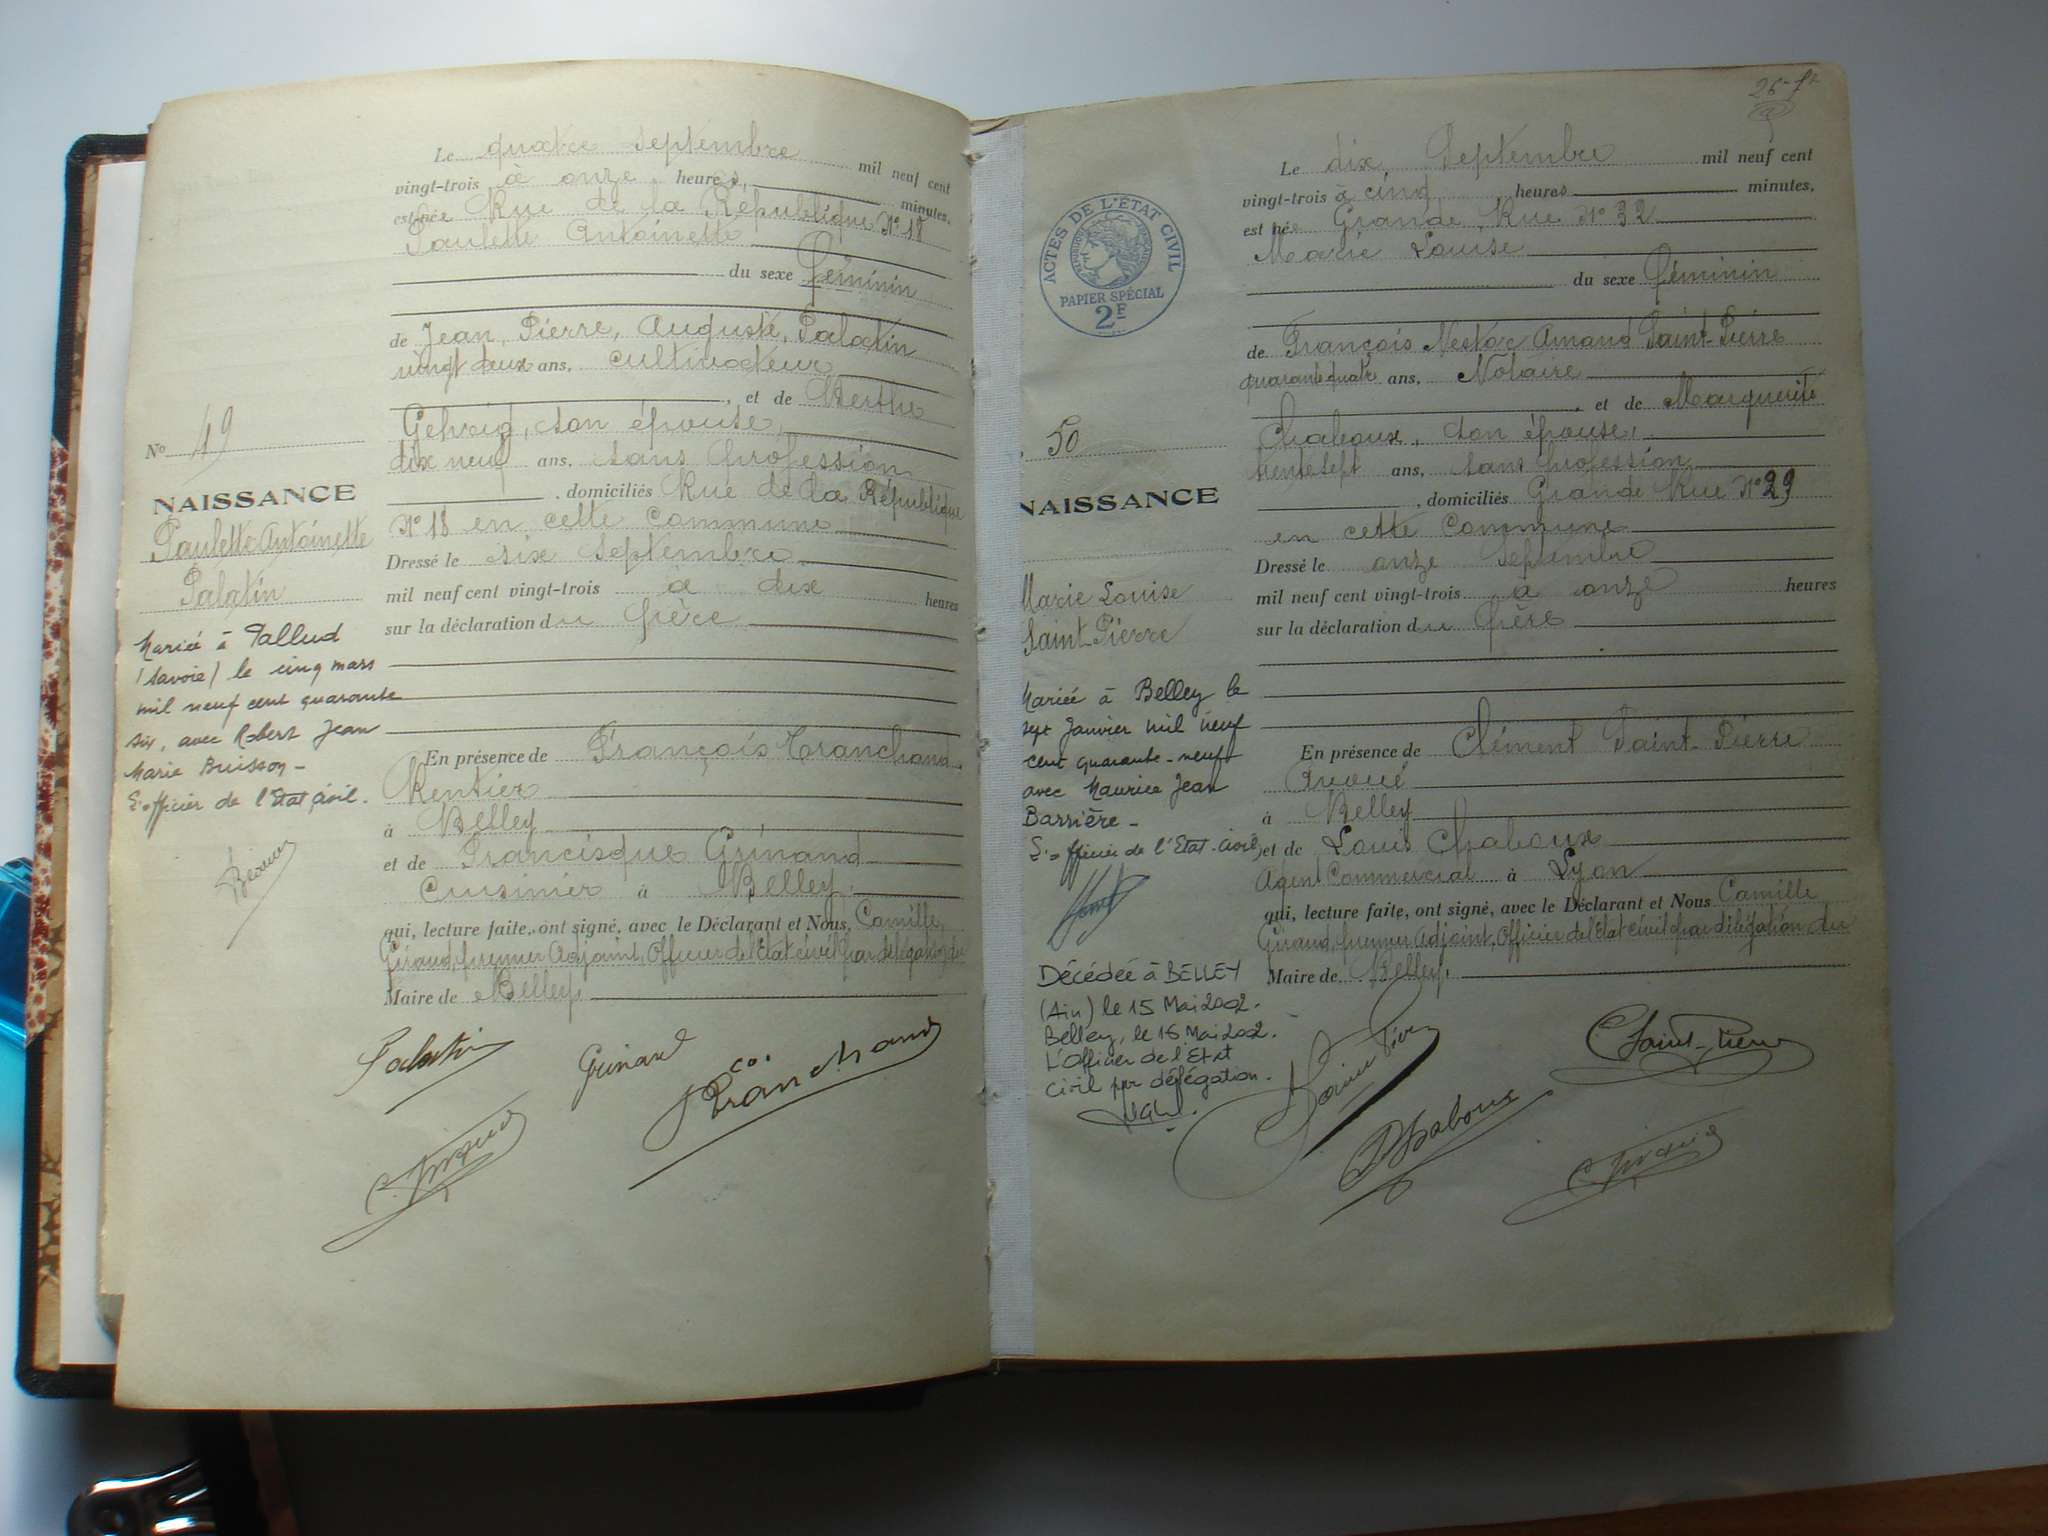 Le quatre Septembre mil neuf cent
vingt-trois à onze heures, minutes,
est née Rue de la République N° 18
Paulette Antoinette
du sexe féminin
de Jean, Pierre, Auguste, Palatin
vingt deux ans, cultivateur
, et de Berthe
Gehrig, son épouse,
dix neuf ans, sans profession
, domiciliés Rue de la République
N° 18 en cette commune
Dressé le six Septembre
mil neuf cent vingt-trois à dix heures
sur la déclaration du père
En présence de François Tranchand
Rentier
à Belley
et de Francisque Grinand
Cuisinier à Belley.
qui, lecture faite, ont signé, avec le Déclarant et Nous, Camille,
Giraud, premier Adjoint, Officier de l'Etat civil par délégation du
Maire de Belley.
Palatin
Grinand
Tranchand
No 49
NAISSANCE
Paulette Antoinette
Palatin
Mariée à Pallud
(Savoie) le cinq mars
mil neuf cent quarante
six, avec Robert Jean
Marie Buisson -
L'officier de l'Etat civil.
26-
ACTES DE L'ÉTAT CIVIL
PAPIER SPÉCIAL
2F
Le dix Septembre mil neuf cent
vingt-trois à cinq heures minutes,
est née Grande Rue N°
Marie Louise
du sexe féminin
de François Nestor Amand Saint-Pierre
quarante quatre ans, Notaire
, et de Marguerite
Chaboux, son épouse,
trente sept ans, sans profession
, domiciliés Grande Rue N° 29
en cette commune
Dressé le onze Septembre
mil neuf cent vingt-trois à onze heures
sur la déclaration du père
En présence de Clément Saint-Pierre
Avoué
à Belley
et de Louis Chaboux
Agent Commercial à Lyon
qui, lecture faite, ont signé, avec le Déclarant et Nous Camille
Giraud, premier Adjoint, Officier de l'Etat civil par délégation du
Maire de Belley.
Saint-Pierre
Chaboux
C Saint-Pierre
50
NAISSANCE
Marie Louise
Saint-Pierre
Mariée à Belley le
sept Janvier mil neuf
cent quarante-neuf
avec Maurice Jean
Barrière -
L'officier de l'Etat-civil,
Décédée à BELLEY
(Ain) le 15 Mai 2002.
Belley, le 16 Mai 2002.
L'Officier de l'Etat
civil par délégation.